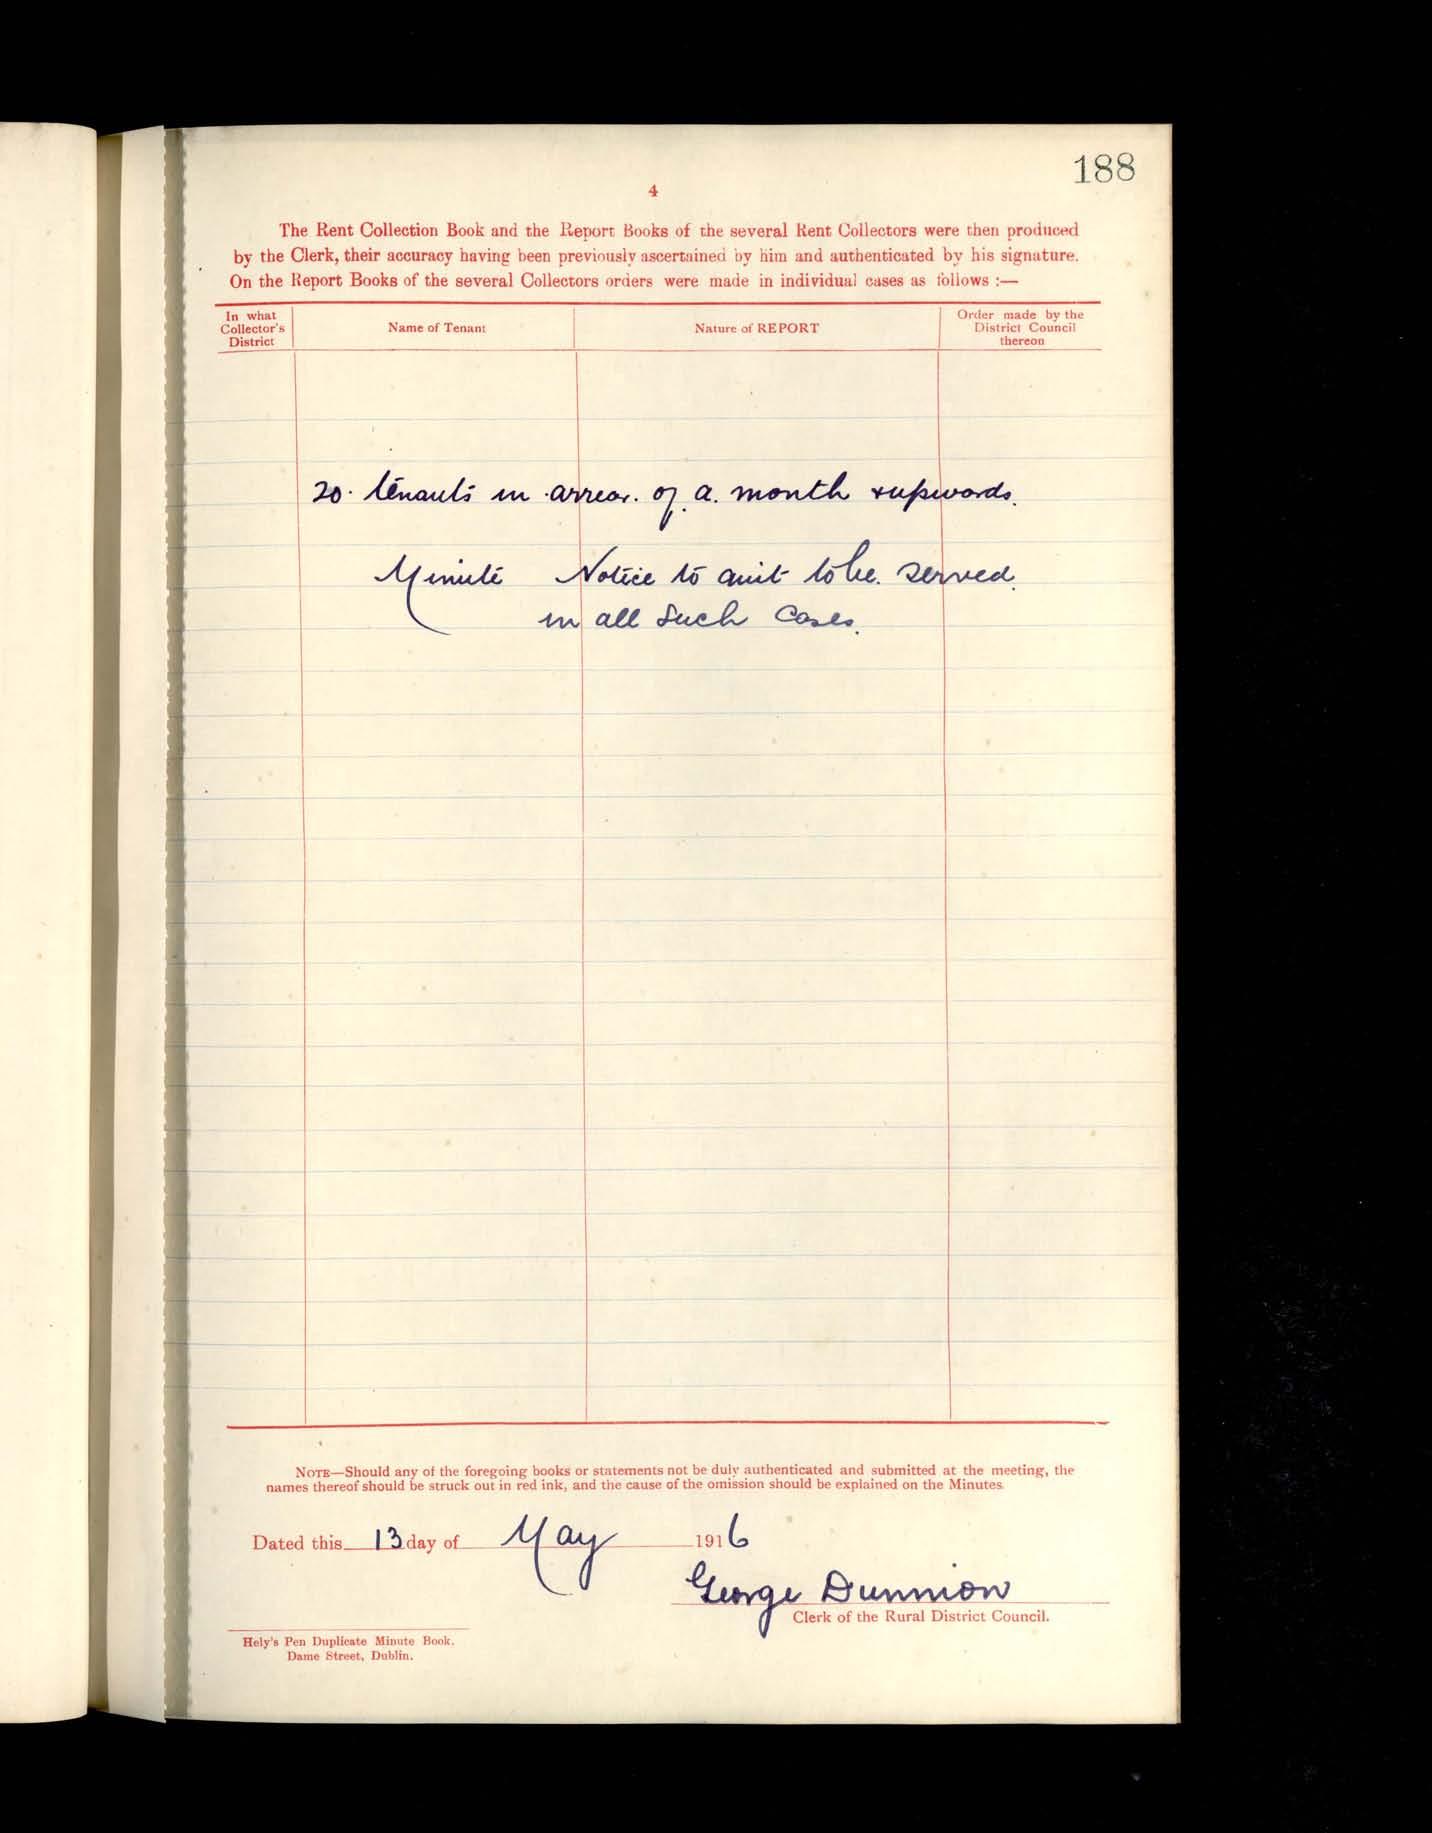 188
4
The Rent Collection Book and the Report Books of the several Rent Collectors were then produced
by the Clerk, their accuracy having been previously ascertained by him and authenticated by his signature.
On the Report Books of the several Collectors orders were made in individual cases as follows :—
In what Collector's District
Name of Tenant
Nature of REPORT
Order made by the District Council thereon
20. tenants in arrear. of a. month & upwards.
Minute Notice to quit to be. served.
in all such cases.
NOTE—Should any of the foregoing books or statements not be duly authenticated and submitted at the meeting, the
names thereof should be struck out in red ink, and the cause of the omission should be explained on the Minutes.
Dated this 13 day of May 1916
George Dunnion
Clerk of the Rural District Council.
Hely's Pen Duplicate Minute Book.
Dame Street, Dublin.